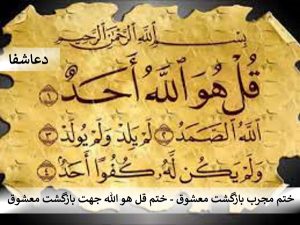 بِسْمِ اللَّهِ الرَّحْمَٰنِ الرَّحِيمِ
دعاشفا
قُلْ هُوَ اللَّهُ أَحَدٌ ۝١
اللَّهُ الصَّمَدُ ۝٢ لَمْ يَلِدْ وَلَمْ يُولَدْ ۝٣
وَلَمْ يَكُن لَّهُ كُفُوًا أَحَدٌ ۝٤
ختم مجرب بازگشت معشوق - ختم قل هو الله جهت بازگشت معشوق